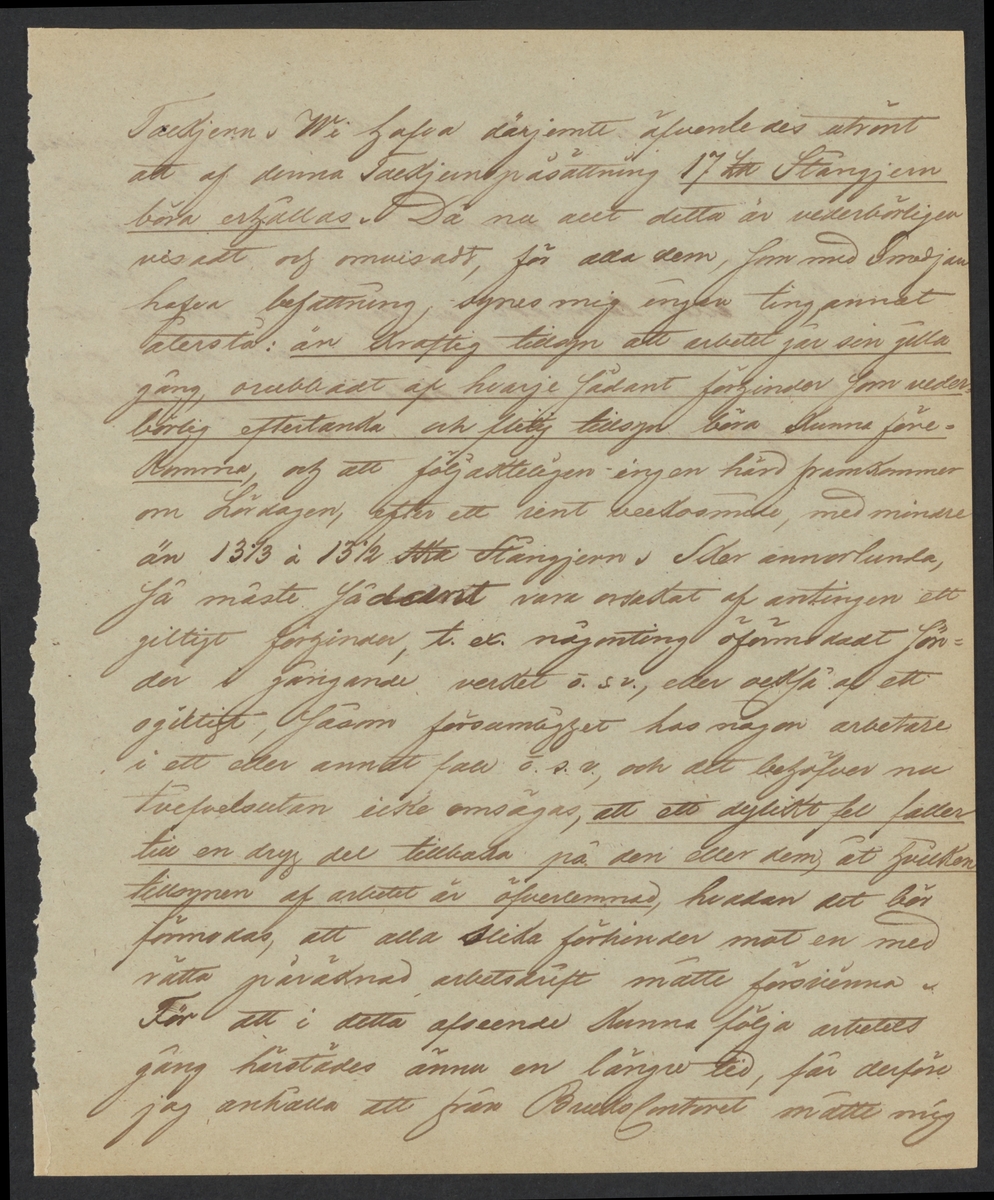 Tackjern. Wi hafva därjemte äfvenledes utrönt
att af denna Tackjernspåsättning 17 L℔ Stångjern
böra erhållas. Då nu allt detta är vederbörligen
visadt och omvisadt, för alla dem, som med Smedjan
hafva befattning, synes mig ingen ting annat
återstå: än kraftig tillsyn att arbetet går sin jılla
gång, orubbadt af hvarje sådant förhinder som veder=
börlig eftertanka och flitig tillsyn böra kunna före=
komma, och att följaktligen ingen härd framkommer
om Lördagen, efter ett rent veckosmide, med mindre
än 13 1/3 à 13 1/2 Stångjern. Sker annorlunda,
så måste sådant vara orsakat af antingen ett
giltigt förhinder, t. ex. någonting oförmodadt sön=
der i gångande verket o. s. v., eller ock så af ett
ogiltigt, såsom försumlighet hos någon arbetare
i ett eller annat fall o. s. v., och det behöfver nu
tvefvelsutan icke omsägas, att ett dylikt fel faller
till en dryg del tillbaka på den eller dem, åt hvilken
tillsynen af arbetet är öfverlemnad, hvadan det bör
förmodas, att alla slika förhinder mot en med
rätta påräknad arbetsdrift måtte försvinna.
För att i detta afseende kunna följa arbetets
gång härstädes ännu en längre tid, får derföre
jag anhålla att från BruksContoret måtte mig